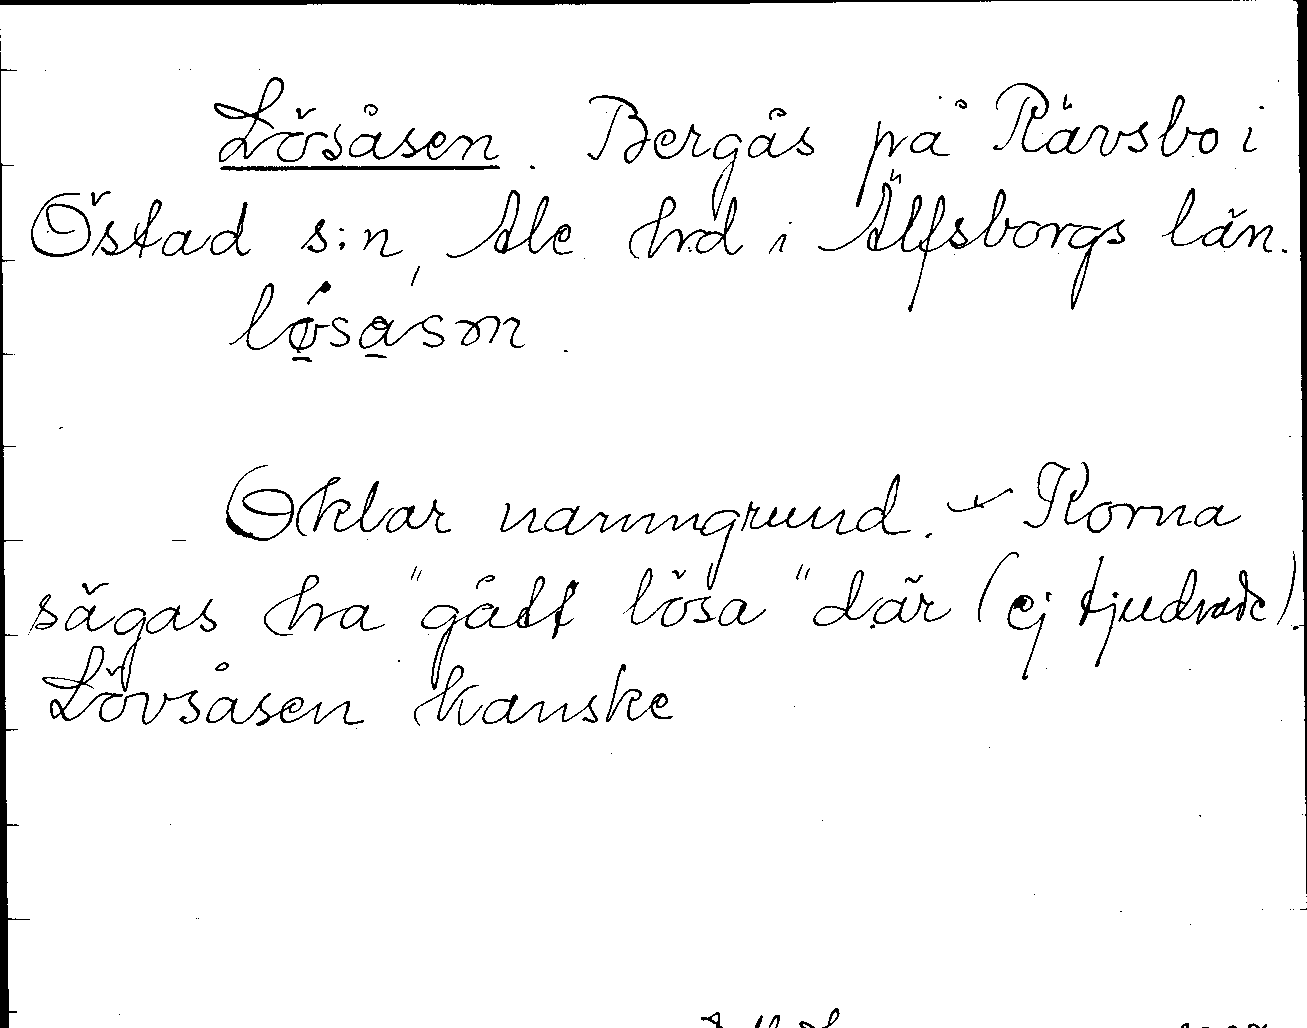 Lösåsen. Bergås på Rävsbo i
Östad s:n, Ale hd i Älfsborgs län.
lø̱sa̱sm.
Oklar namngrund. – Korna
sägas ha "gått lösa" där (ej tjudrade).
Lövsåsen kanske